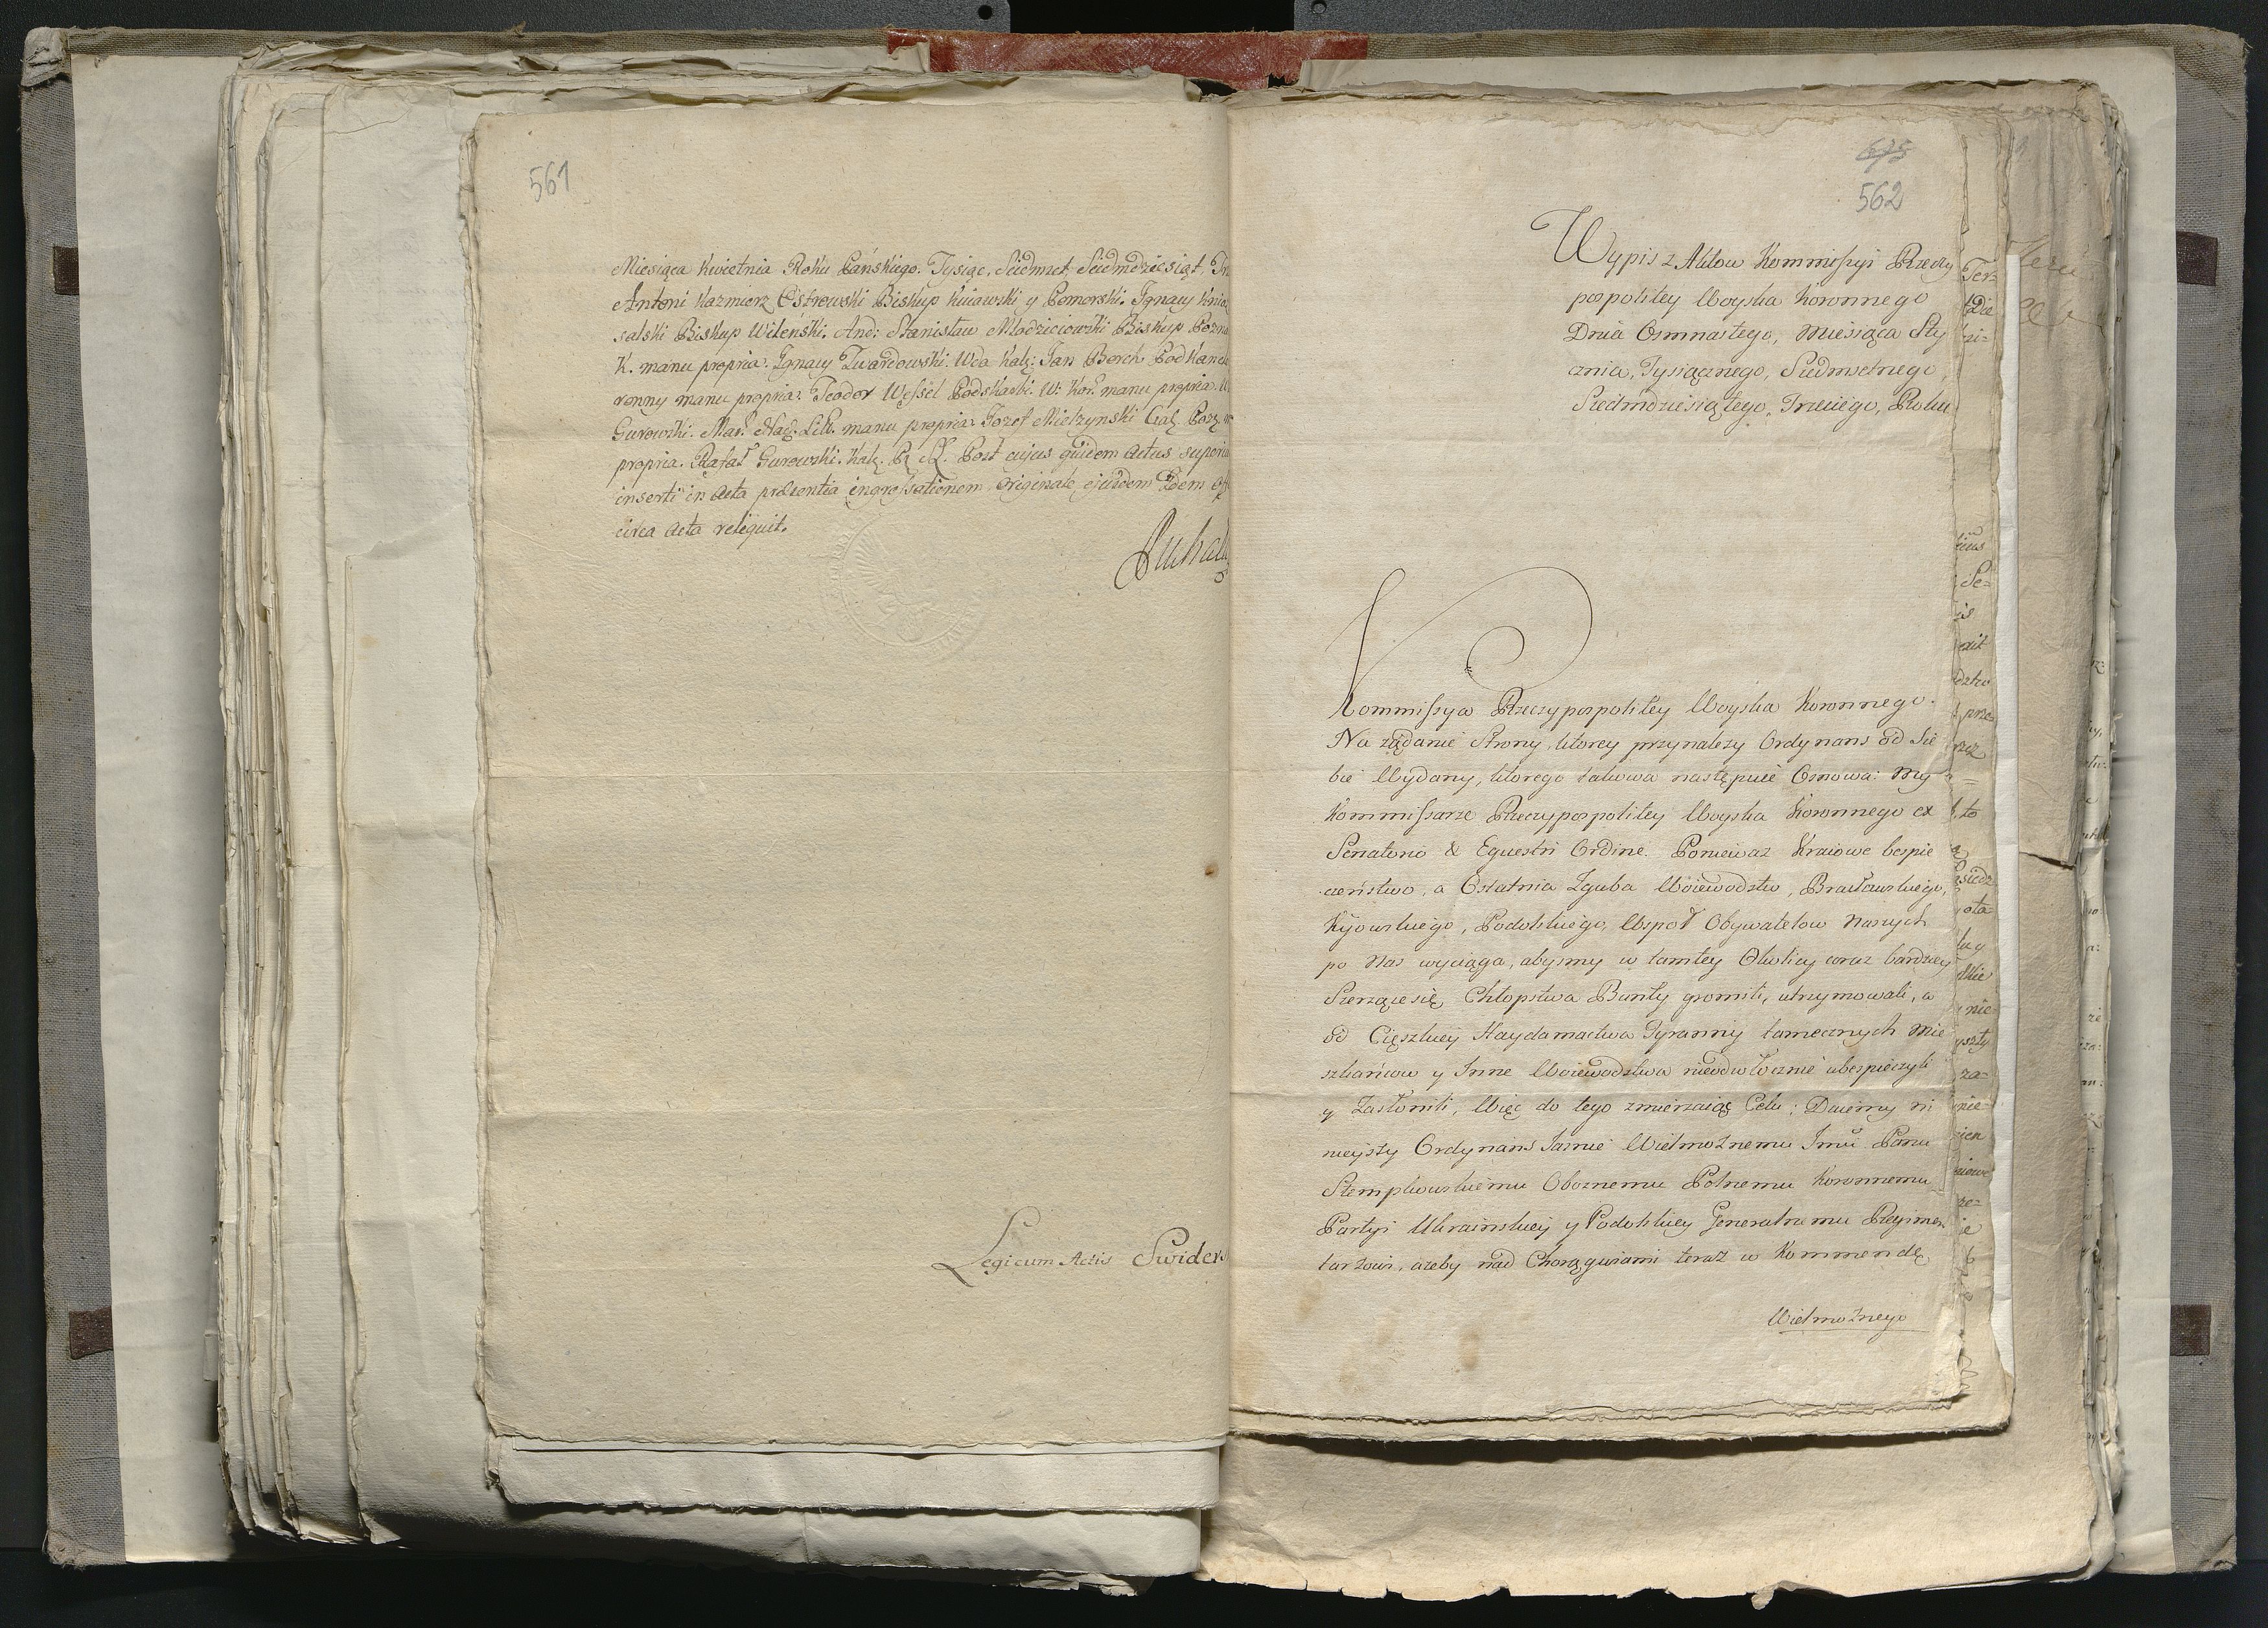 561
Miesiąca Kwietnia Roku Pańskiego. Tysiąc, Siedmset, Siedmdziesiąt, Tr
Antoni Kazmierz Ostrowski Biskup Kuiawski y Pomorski. Ignacy Kniaz
salski Biskup Wileński. And: Stanisław Młodzieiowski Biskup Pozna
K. manu propria. Ignacy Twardowski. Wda Kal: Jan Borch Podkancl
ronny manu propria. Teodor Weſsel Podskarbi. W: Kor: manu propria.
Gurowski. Mar. Nad. Litt. manu propria. Jozef Mielzynski
propria. Rafał Gurowski. Kal. Post cujus quidem Actus superius
inserti in Acta præsentia ingroſsationem Originale ejusdem Idem Off
circa Acta reliquit.
Legi cum Actis Swiders
675
562
Wypis z Aktow Kommiſsyi Rzeczy
pospolitey Woyska Koronnego
Dnia Osmnastego, Miesiąca Sty
cznia, Tysiącznego, Siedmsetnego,
Siedmdziesiątego, Trzeciego, Roku
Kommiſsya Rzeczypospolitey Woyska Koronnego.
Na ządanie Strony, ktorey przynalezy Ordynans od Sie
bie Wydany, ktorego takowa następuie Osnowa: My
Kommiſsarze Rzeczypospolitey Woyska Koronnego ex
Senatorio & Equestri Ordine. Poniewaz Kraiowe bespie
czeństwo, a Ostatnia Zguba Woiewodztw, Bracławskiego,
Kyiowskiego, Podolskiego, Wspoł Obywatelow Naszych
po Nas wyciąga, abysmy w tamtey Okolicy coraz bardziey
Szerzące się Chłopstwa Bunty gromili, utrzymowali, a
od Cięszkiey Haydamactwa Tyranniy tamecznych Mie
szkańcow y Inne Woiewodztwa nieodwłocznie ubespieczyli
y Zasłonili, Więc do tego zmierzaiąc Celu; Daiemy ni
nieyszy Ordynans Jasnie Wielmożnemu Jmć Panu
Stempkowskiemu Oboznemu Polnemu Koronnemu
Partyi Ukrainskiey y Podolskiey Generalnemu Regimen
tarzowi, azeby nad Chorągwiami teraz w Kommendę
Wielmożnego